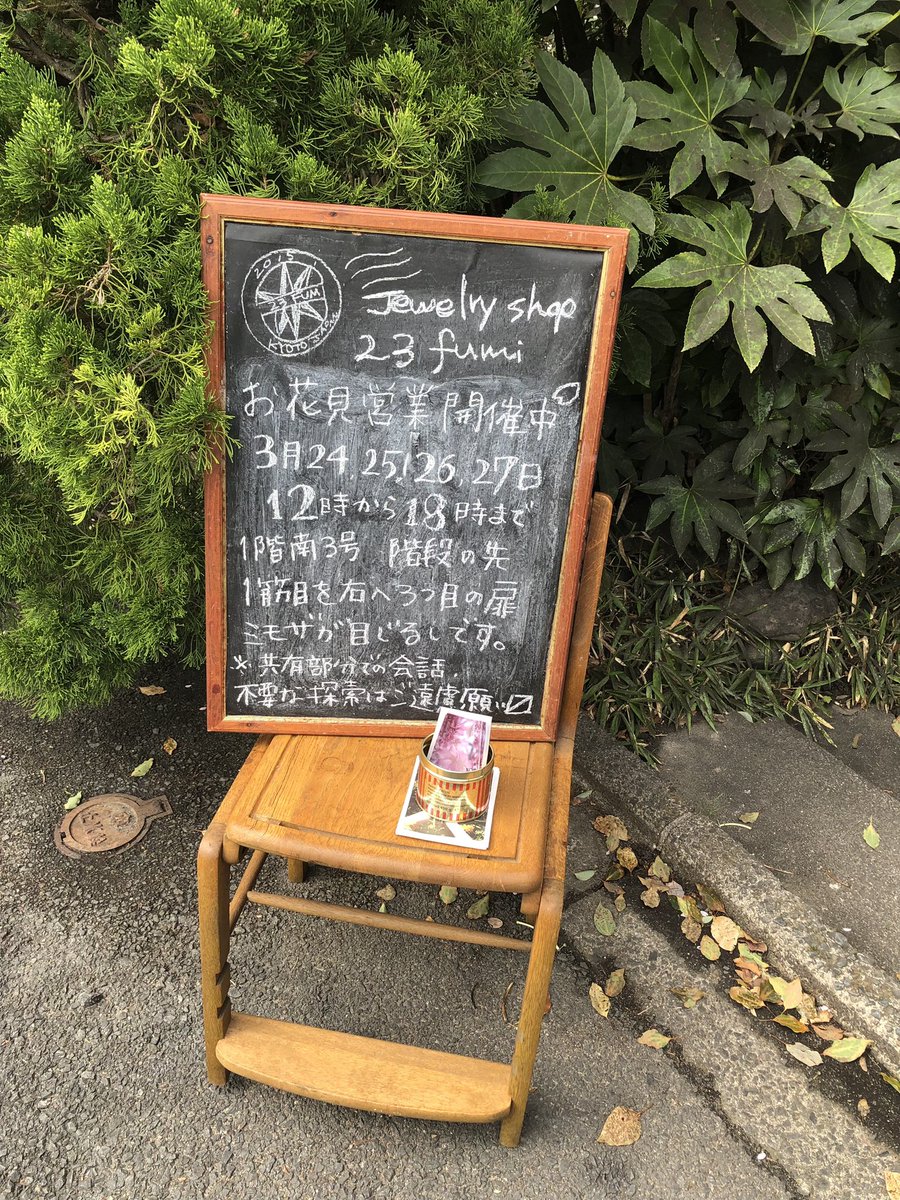 2015
23FUMI
KYOTO JAPAN
Jewelry shop
23 fumi
お花見営業開催中
3月24,25,26,27日
12時から18時まで
1階南3号 階段の先
1筋目を右へ3つ目の扉
ミモザが目じるしです。
※共有部分での会話、
不要な探索はご遠慮願い〼